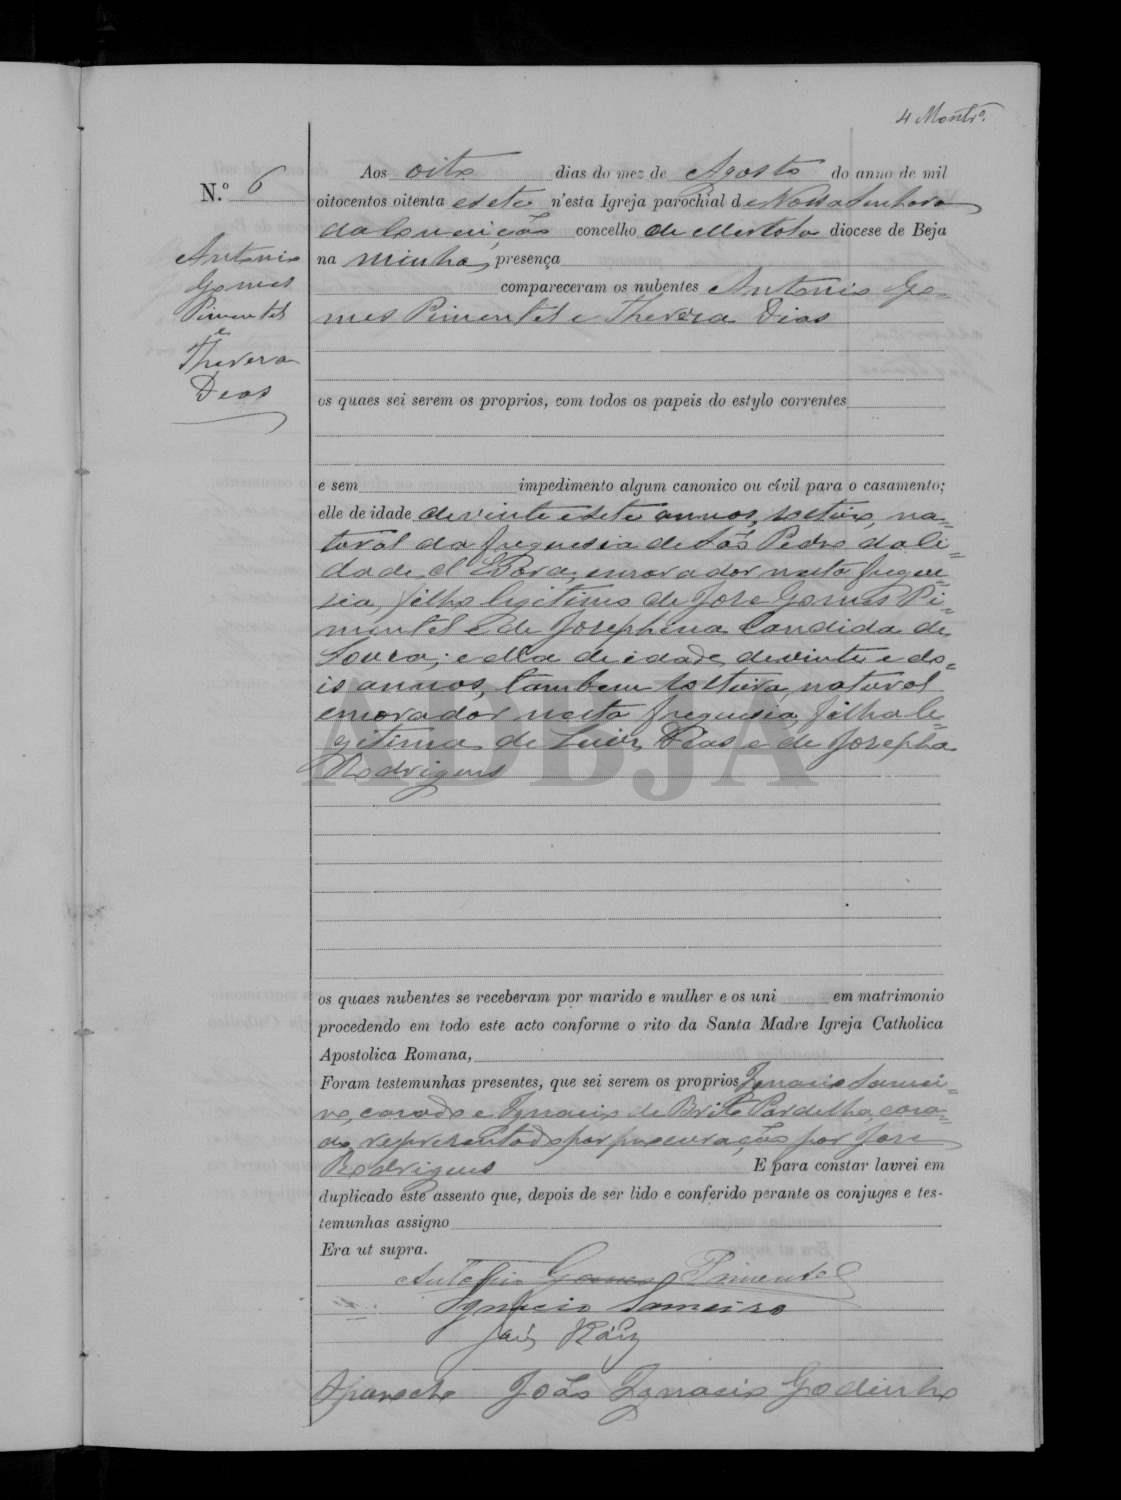 4 Montrº.
N.º 6
Antonio
Gomes
Pimentel
e
Thereza
Dias
Aos oito dias do mez de Agosto do anno de mil
oitocentos oitenta e sete n'esta Igreja parochial de Nossa Senhora
da Conceição concelho de Mertola diocese de Beja
na minha presença
compareceram os nubentes Antonio Go-
mes Pimentel e Thereza Dias
os quaes sei serem os proprios, com todos os papeis do estylo correntes
e sem impedimento algum canonico ou civil para o casamento;
elle de idade de vinte e sete annos, solteiro, na-
tural da freguesia de São Pedro da Ci-
dade d'Evora, e morador nesta fregue-
sia, filho legitimo de Jose Gomes Pi-
mentel e de Josephina Candida de
Souza; e ella de idade de vinte e do-
is annos, tambem solteira, natural
e morador nesta freguesia, filha le-
gitima de Luiz Dias e de Josepha
Rodrigues
ADBJA
os quaes nubentes se receberam por marido e mulher e os uni em matrimonio
procedendo em todo este acto conforme o rito da Santa Madre Igreja Catholica
Apostolica Romana,
Foram testemunhas presentes, que sei serem os proprios Ignacio Samei-
ro, casado e Ignacio de Brito Pardelha, casa-
do, representado por procuração por Jose
Rodrigues E para constar lavrei em
duplicado este assento que, depois de ser lido e conferido perante os conjuges e tes-
temunhas assigno
Era ut supra.
Antonio Gomes Pimentel
Ignacio Sameiro
O parocho João Ignacio Godinho